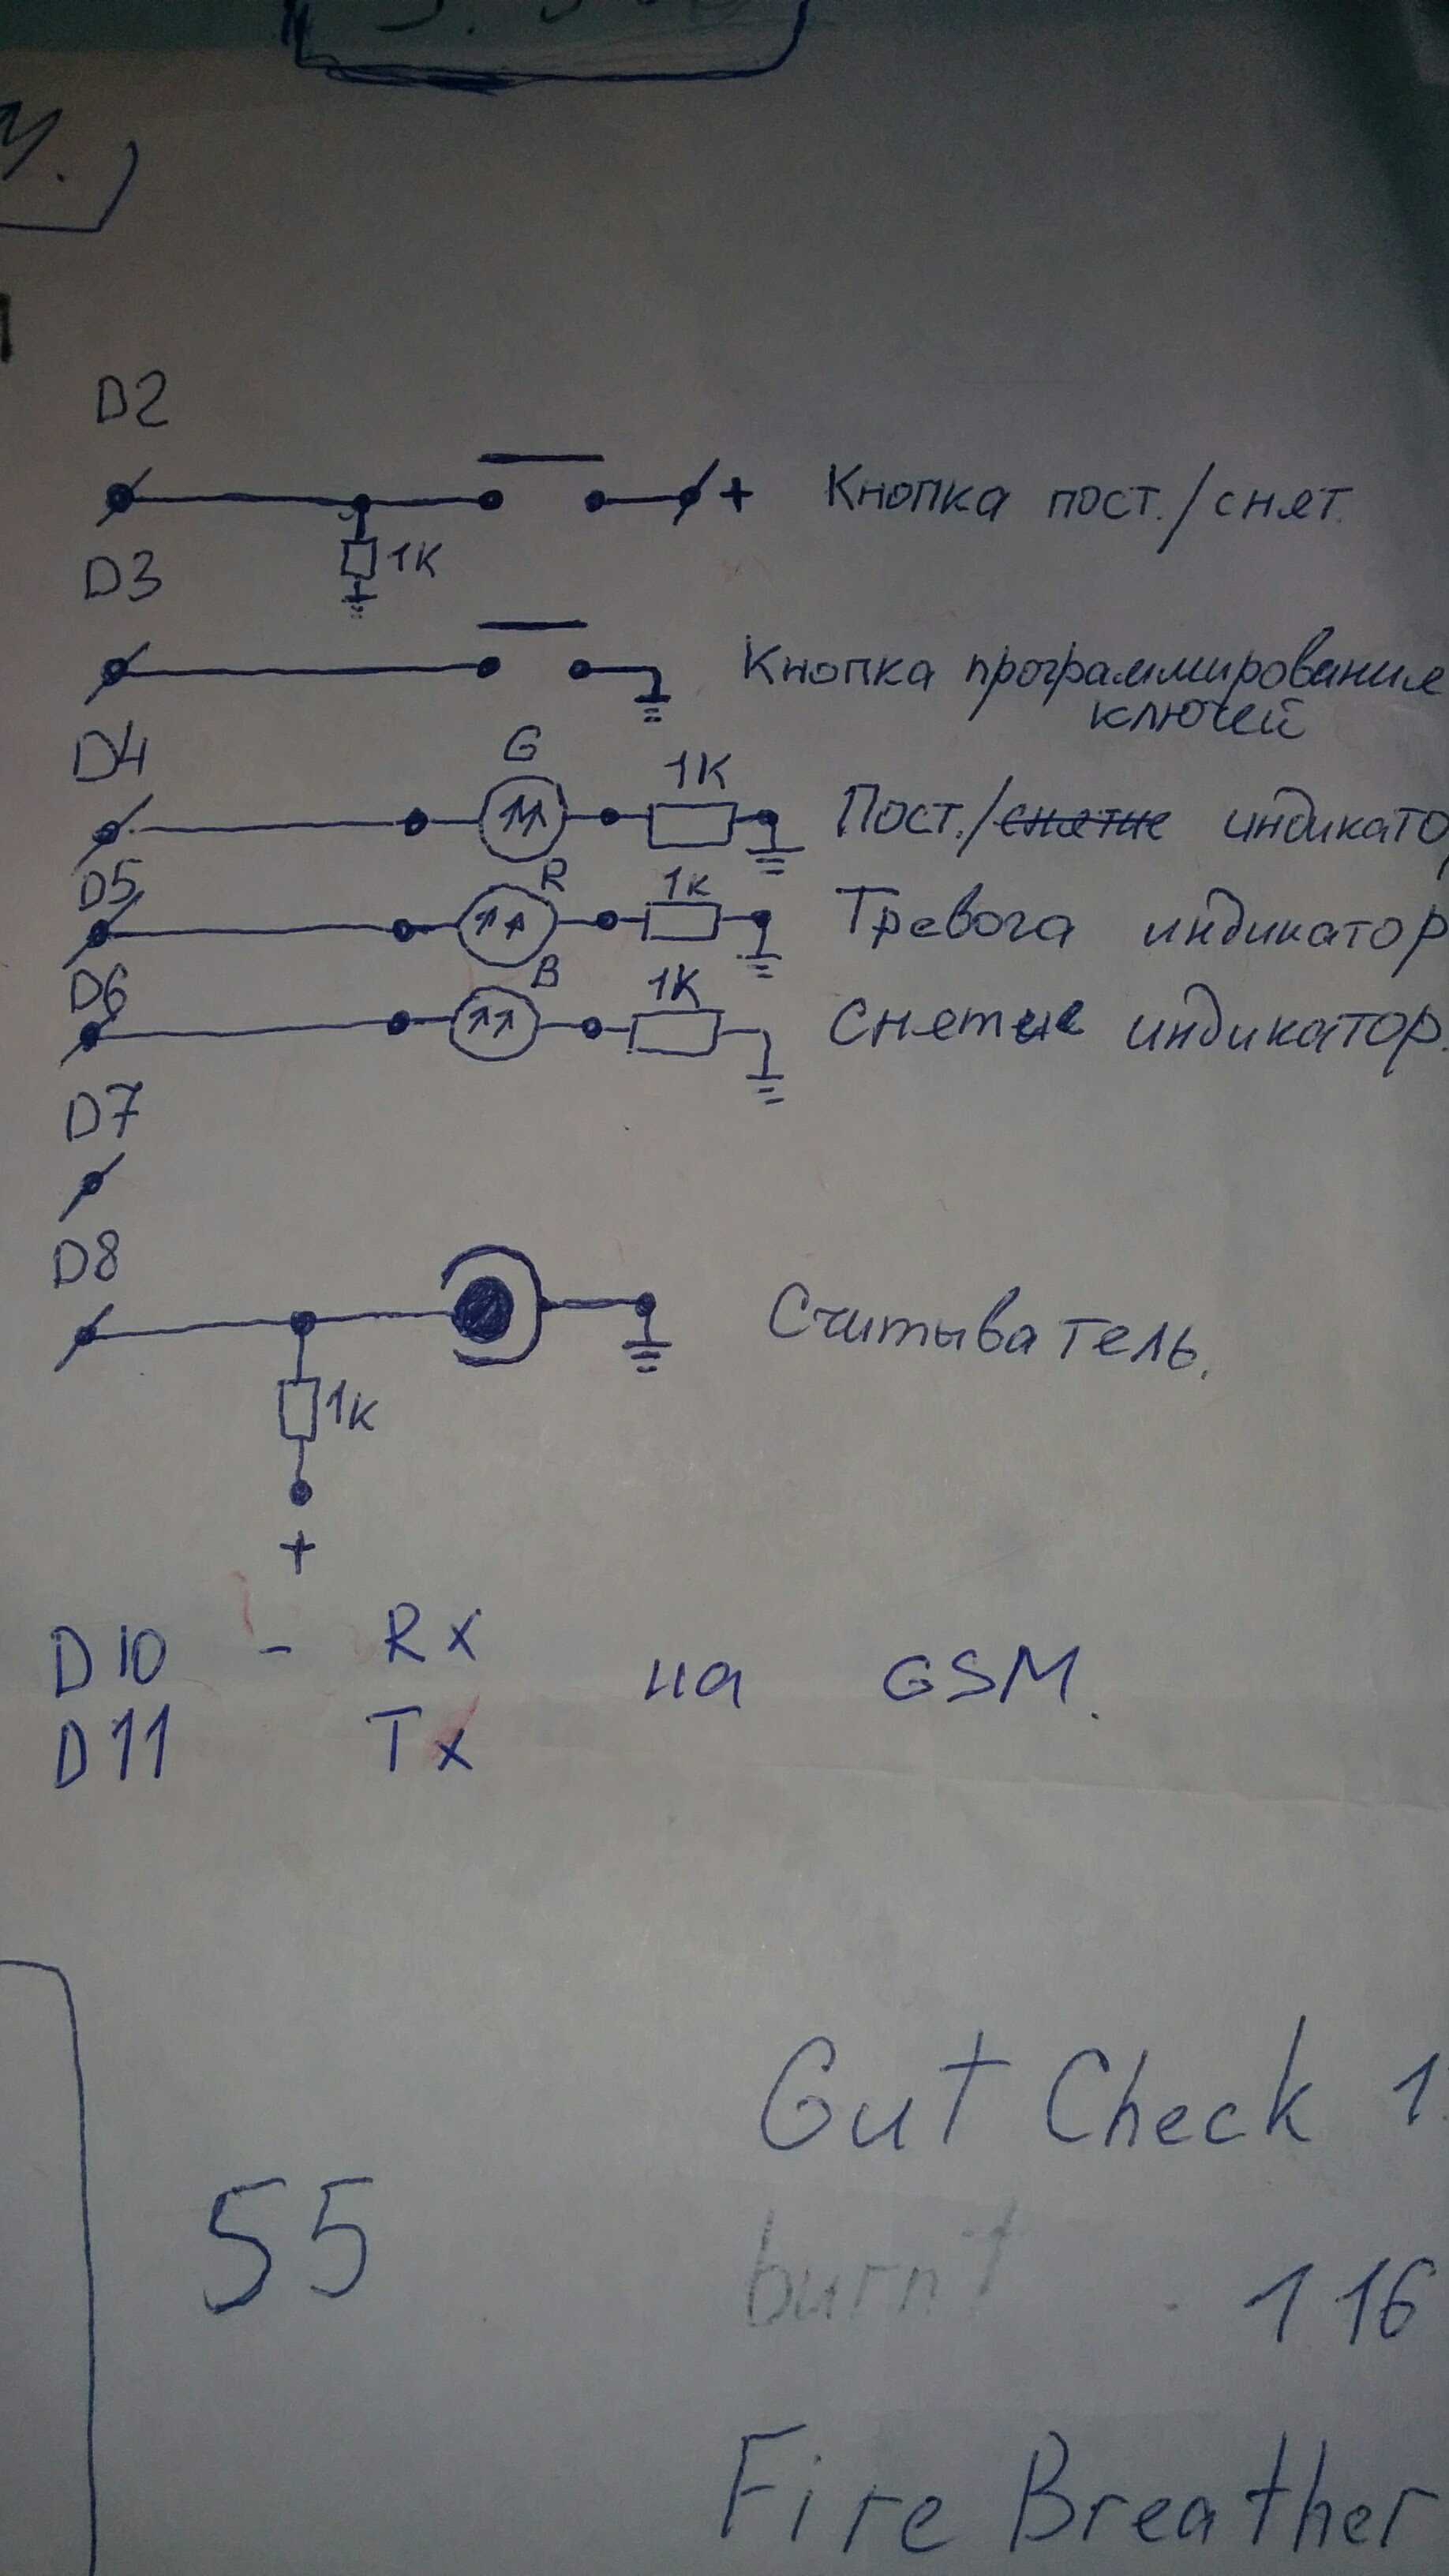 D2
+ Кнопка пост./снят.
1К
D3
Кнопка программирования
ключей
D4
G
1К
Пост./снятие индикато
D5
R
1к
Тревога индикатор
D6
B
1К
Снятие индикатор.
D7
D8
Считыватель.
1к
+
D10 - Rx
на GSM.
D11 Tx
Gut Check 1
55
burnt 116
Fire Breather